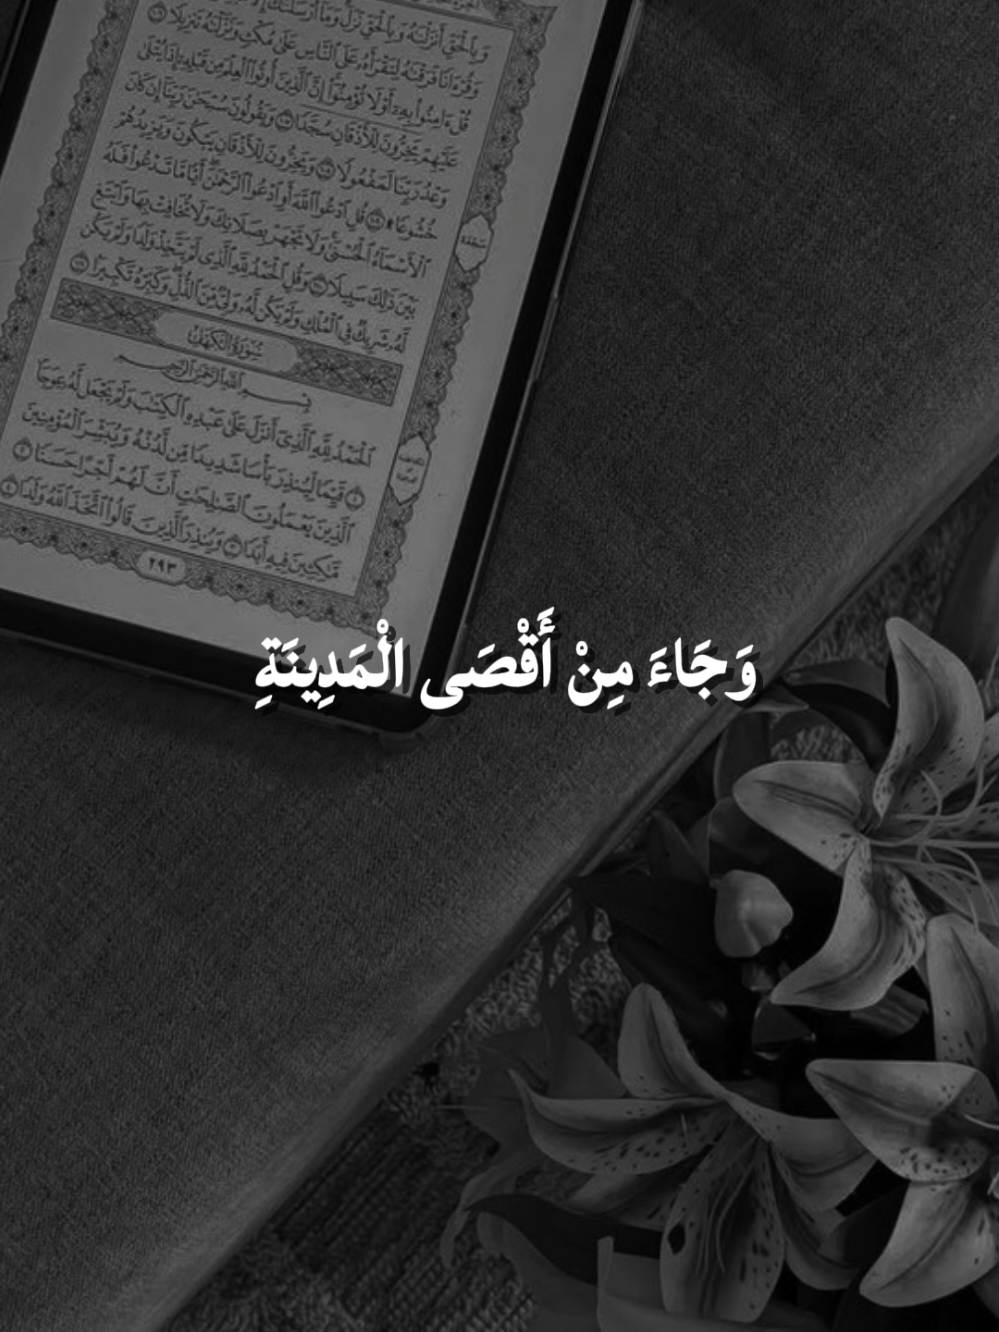 وَبِالْحَقِّ أَنزَلْنَاهُ وَبِالْحَقِّ نَزَلَ وَمَا أَرْسَلْنَاكَ
وَقُرْءَانًا فَرَقْنَاهُ لِتَقْرَأَهُ عَلَى النَّاسِ عَلَىٰ مُكْثٍ وَنَزَّلْنَاهُ تَنزِيلًا ١٠٦
قُلْ ءَامِنُوا بِهِ أَوْ لَا تُؤْمِنُوا إِنَّ الَّذِينَ أُوتُوا الْعِلْمَ مِن قَبْلِهِ إِذَا يُتْلَىٰ
عَلَيْهِمْ يَخِرُّونَ لِلْأَذْقَانِ سُجَّدًا ١٠٧ وَيَقُولُونَ سُبْحَانَ رَبِّنَا إِن كَانَ
وَعْدُ رَبِّنَا لَمَفْعُولًا ١٠٨ وَيَخِرُّونَ لِلْأَذْقَانِ يَبْكُونَ وَيَزِيدُهُمْ
خُشُوعًا ۩ ١٠٩ قُلِ ادْعُوا اللَّهَ أَوِ ادْعُوا الرَّحْمَٰنَ أَيًّا مَّا تَدْعُوا فَلَهُ
الْأَسْمَاءُ الْحُسْنَىٰ وَلَا تَجْهَرْ بِصَلَاتِكَ وَلَا تُخَافِتْ بِهَا وَابْتَغِ
بَيْنَ ذَٰلِكَ سَبِيلًا ١١٠ وَقُلِ الْحَمْدُ لِلَّهِ الَّذِي لَمْ يَتَّخِذْ وَلَدًا وَلَمْ يَكُن
لَّهُ شَرِيكٌ فِي الْمُلْكِ وَلَمْ يَكُن لَّهُ وَلِيٌّ مِّنَ الذُّلِّ وَكَبِّرْهُ تَكْبِيرًا ١١١
سُورَةُ الْكَهْفِ
بِسْمِ اللَّهِ الرَّحْمَٰنِ الرَّحِيمِ
الْحَمْدُ لِلَّهِ الَّذِي أَنزَلَ عَلَىٰ عَبْدِهِ الْكِتَابَ وَلَمْ يَجْعَل لَّهُ عِوَجًا
١ قَيِّمًا لِّيُنذِرَ بَأْسًا شَدِيدًا مِّن لَّدُنْهُ وَيُبَشِّرَ الْمُؤْمِنِينَ
الَّذِينَ يَعْمَلُونَ الصَّالِحَاتِ أَنَّ لَهُمْ أَجْرًا حَسَنًا ٢
مَّاكِثِينَ فِيهِ أَبَدًا ٣ وَيُنذِرَ الَّذِينَ قَالُوا اتَّخَذَ اللَّهُ وَلَدًا ٤
٢٩٣
وَجَاءَ مِنْ أَقْصَى الْمَدِينَةِ